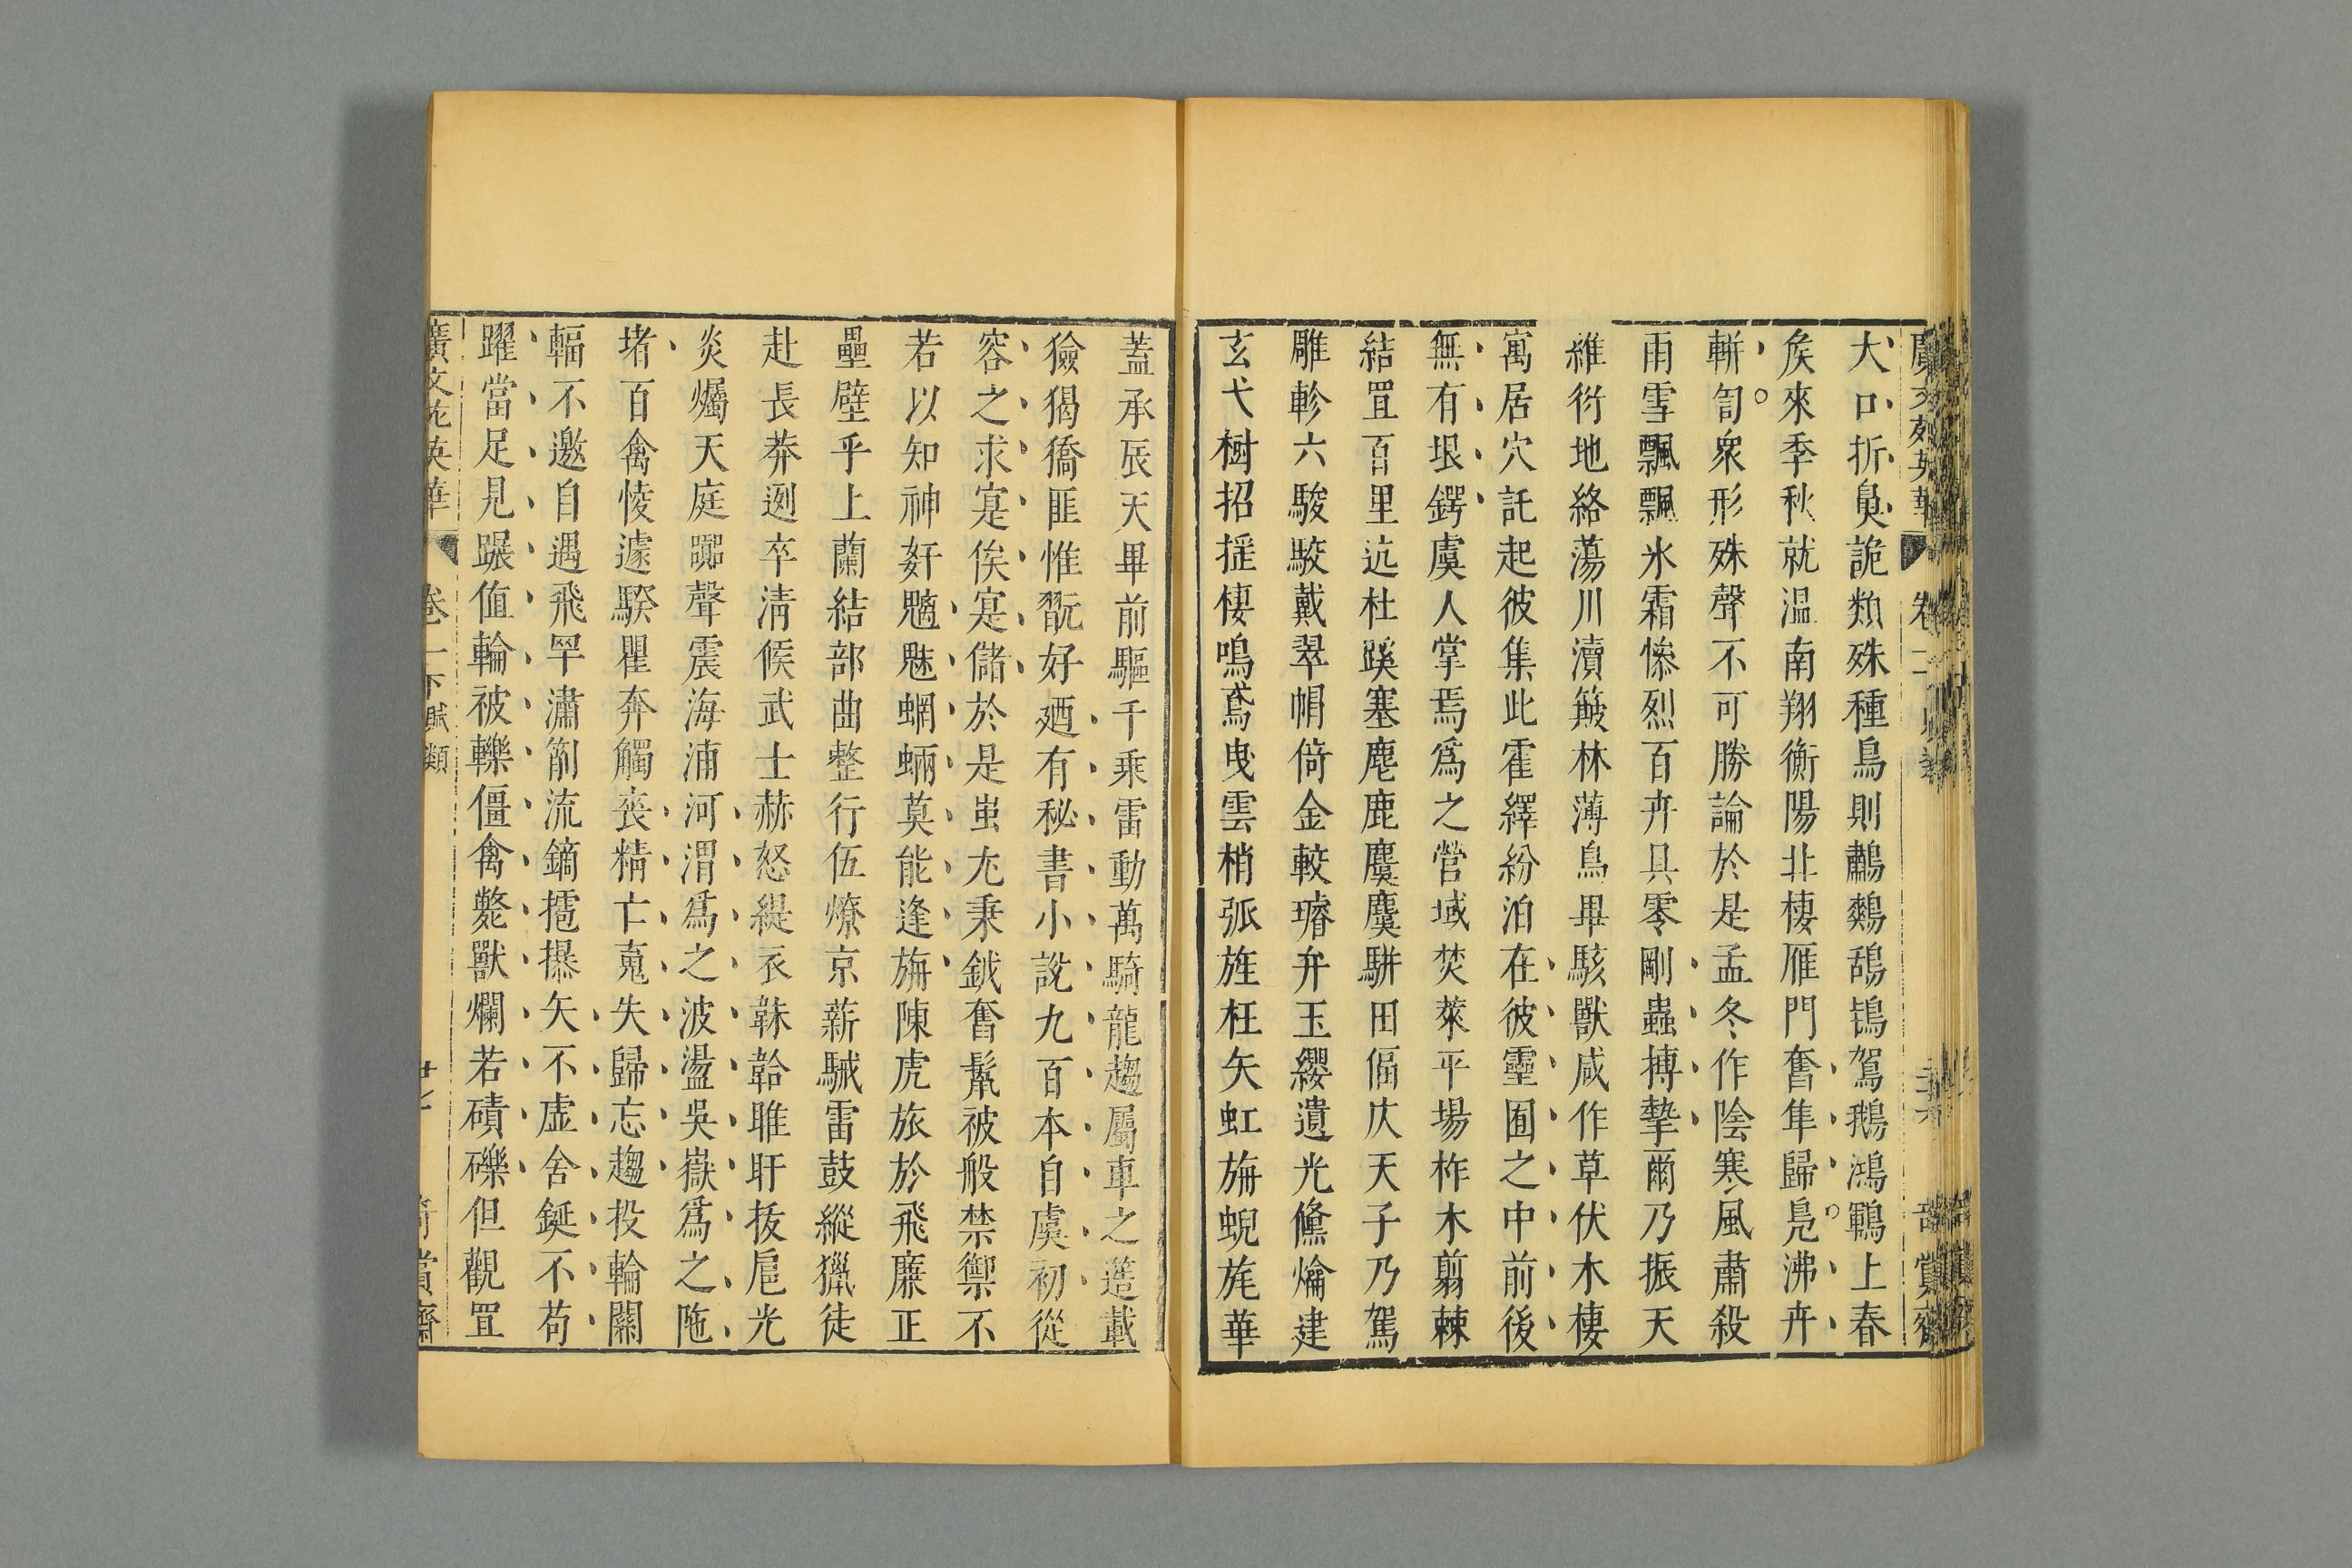 大口折鼻詭類殊種鳥則鷫鷞鴰鴇鴐鵝鴻鶤上春
矦來季秋就温南翔衡陽北棲雁門奮隼歸鳬沸卉
軿訇衆形殊聲不可勝論於是孟冬作陰寒風肅殺
雨雪飄飄氷霜慘烈百卉具零剛蟲搏摯爾乃振天
維衍地絡蕩川瀆簸林薄鳥畢駭獸咸作草伏木棲
寓居穴託起彼集此霍繹紛泊在彼靈囿之中前後
無有垠鍔虞人掌焉爲之營域焚萊平場柞木翦棘
結罝百里迒杜蹊塞麀鹿麌麌駢田偪仄天子乃駕
雕軫六駿駮戴翠帽倚金較璿弁玉纓遺光儵爚建
玄弋樹招揺棲鳴鳶曳雲梢弧旌枉矢虹旃蜺旄華
蓋承辰天畢前驅千乘雷動萬騎龍趨屬車之簉載
獫猲獢匪惟翫好廼有秘書小說九百本自虞初從
容之求寔俟寔儲於是蚩尤秉鉞奮鬣被般禁禦不
若以知神奸魑魅蝄蜽莫能逢旃陳虎旅於飛廉正
壘壁乎上蘭結部曲整行伍燎京薪駴雷鼓縱獵徒
赴長莽迾卒清候武士赫怒緹衣韎韐睢盱拔扈光
炎爥天庭嚻聲震海浦河渭爲之波盪吳嶽爲之陁
堵百禽㥄遽騤瞿奔觸喪精亡䰟失歸忘趨投輪關
輻不邀自遇飛罕潚箾流鏑㩧㩧矢不虛舍鋋不苟
躍當足見蹍值輪被轢僵禽斃獸爛若磧礫但觀罝
廣文苑英華 卷一下賦類 廿七 賞齋